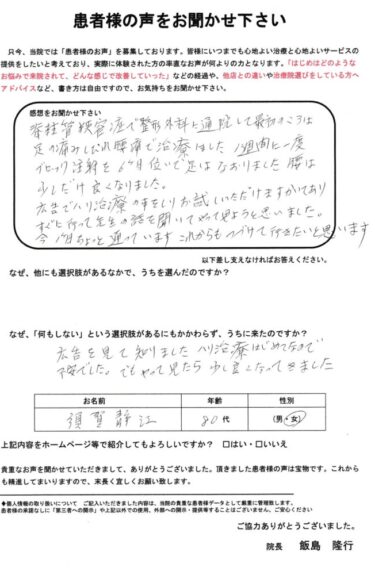 患者様の声をお聞かせ下さい
只今、当院では「患者様のお声」を募集しております。皆様にいつまでも心地よい治療と心地よいサービスの
提供をしたいと考えており、実際に体験された方の率直なお声が何よりの力となります。「はじめはどのような
お悩みで来院されて、どんな感じで改善していった」などの経過や、他店との違いや治療院選びをしている方へ
アドバイスなど、書き方は自由ですので、お気持ちをお聞かせ下さい。
感想をお聞かせ下さい
脊柱管狭窄症で整形外科に通院して最初のころは
足の痛みしびれ腰痛で治療はした 1週間に一度
ブロック注射を6ヶ月位いで足はなおりました 腰は
少しだけ良くなりました。
広告でハリ治療の事をしりお試しいただけますかいてあり
すぐに行って先生の話を聞いてやって見ようと思いました。
今1ヶ月ちょっと通っています これからもつづけて行きたいと思います
以下差し支えなければお答えください。
なぜ、他にも選択肢があるなかで、うちを選んだのですか?
なぜ、「何もしない」という選択肢があるにもかかわらず、うちに来たのですか?
広告を見て知りました ハリ治療はじめてなので
不安でした。でもやって見たら少し良くなってきました
お名前 年齢 性別
須賀静江 80代 (男・女)
上記内容をホームページ等で紹介してもよろしいですか? □はい・□いいえ
貴重なお声を聞かせていただきまして、ありがとうございました。頂きました患者様の声は宝物です。これから
も精進してまいりますので、末長く宜しくお願い致します。
◆個人情報の取り扱いについて ご記入いただきました内容は、当院の貴重な患者様データとして厳重に管理致します。
患者様の承諾なしに「第三者への開示」や上記以外での使用、外部への開示・提供等することはございません、ご安心ください
ご協力ありがとうございました。
院長 飯島 隆行